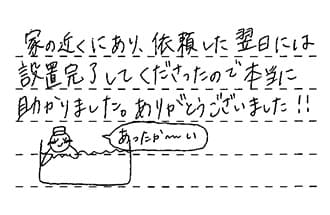 家の近くにあり、依頼した翌日には
設置完了してくださったので本当に
助かりました。ありがとうございました!!
あったか〜い